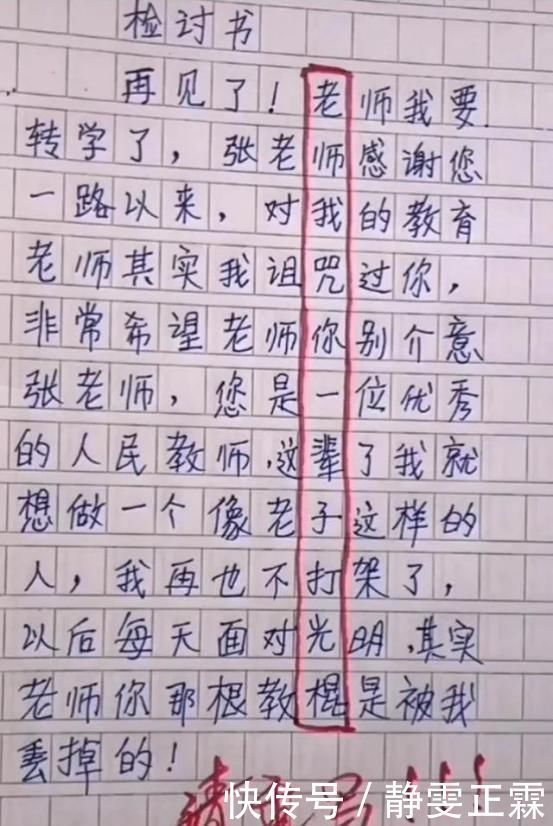 检讨书
再见了！老师我要
转学了，张老师感谢您
一路以来，对我的教育
老师其实我诅咒过你，
非常希望老师你别介意
张老师，您是一位优秀
的人民教师，这辈了我就
想做一个像老子这样的
人，我再也不打架了，
以后每天面对光明，其实
老师你那根教棍是被我
丢掉的！
请
快传号／静雯正霖